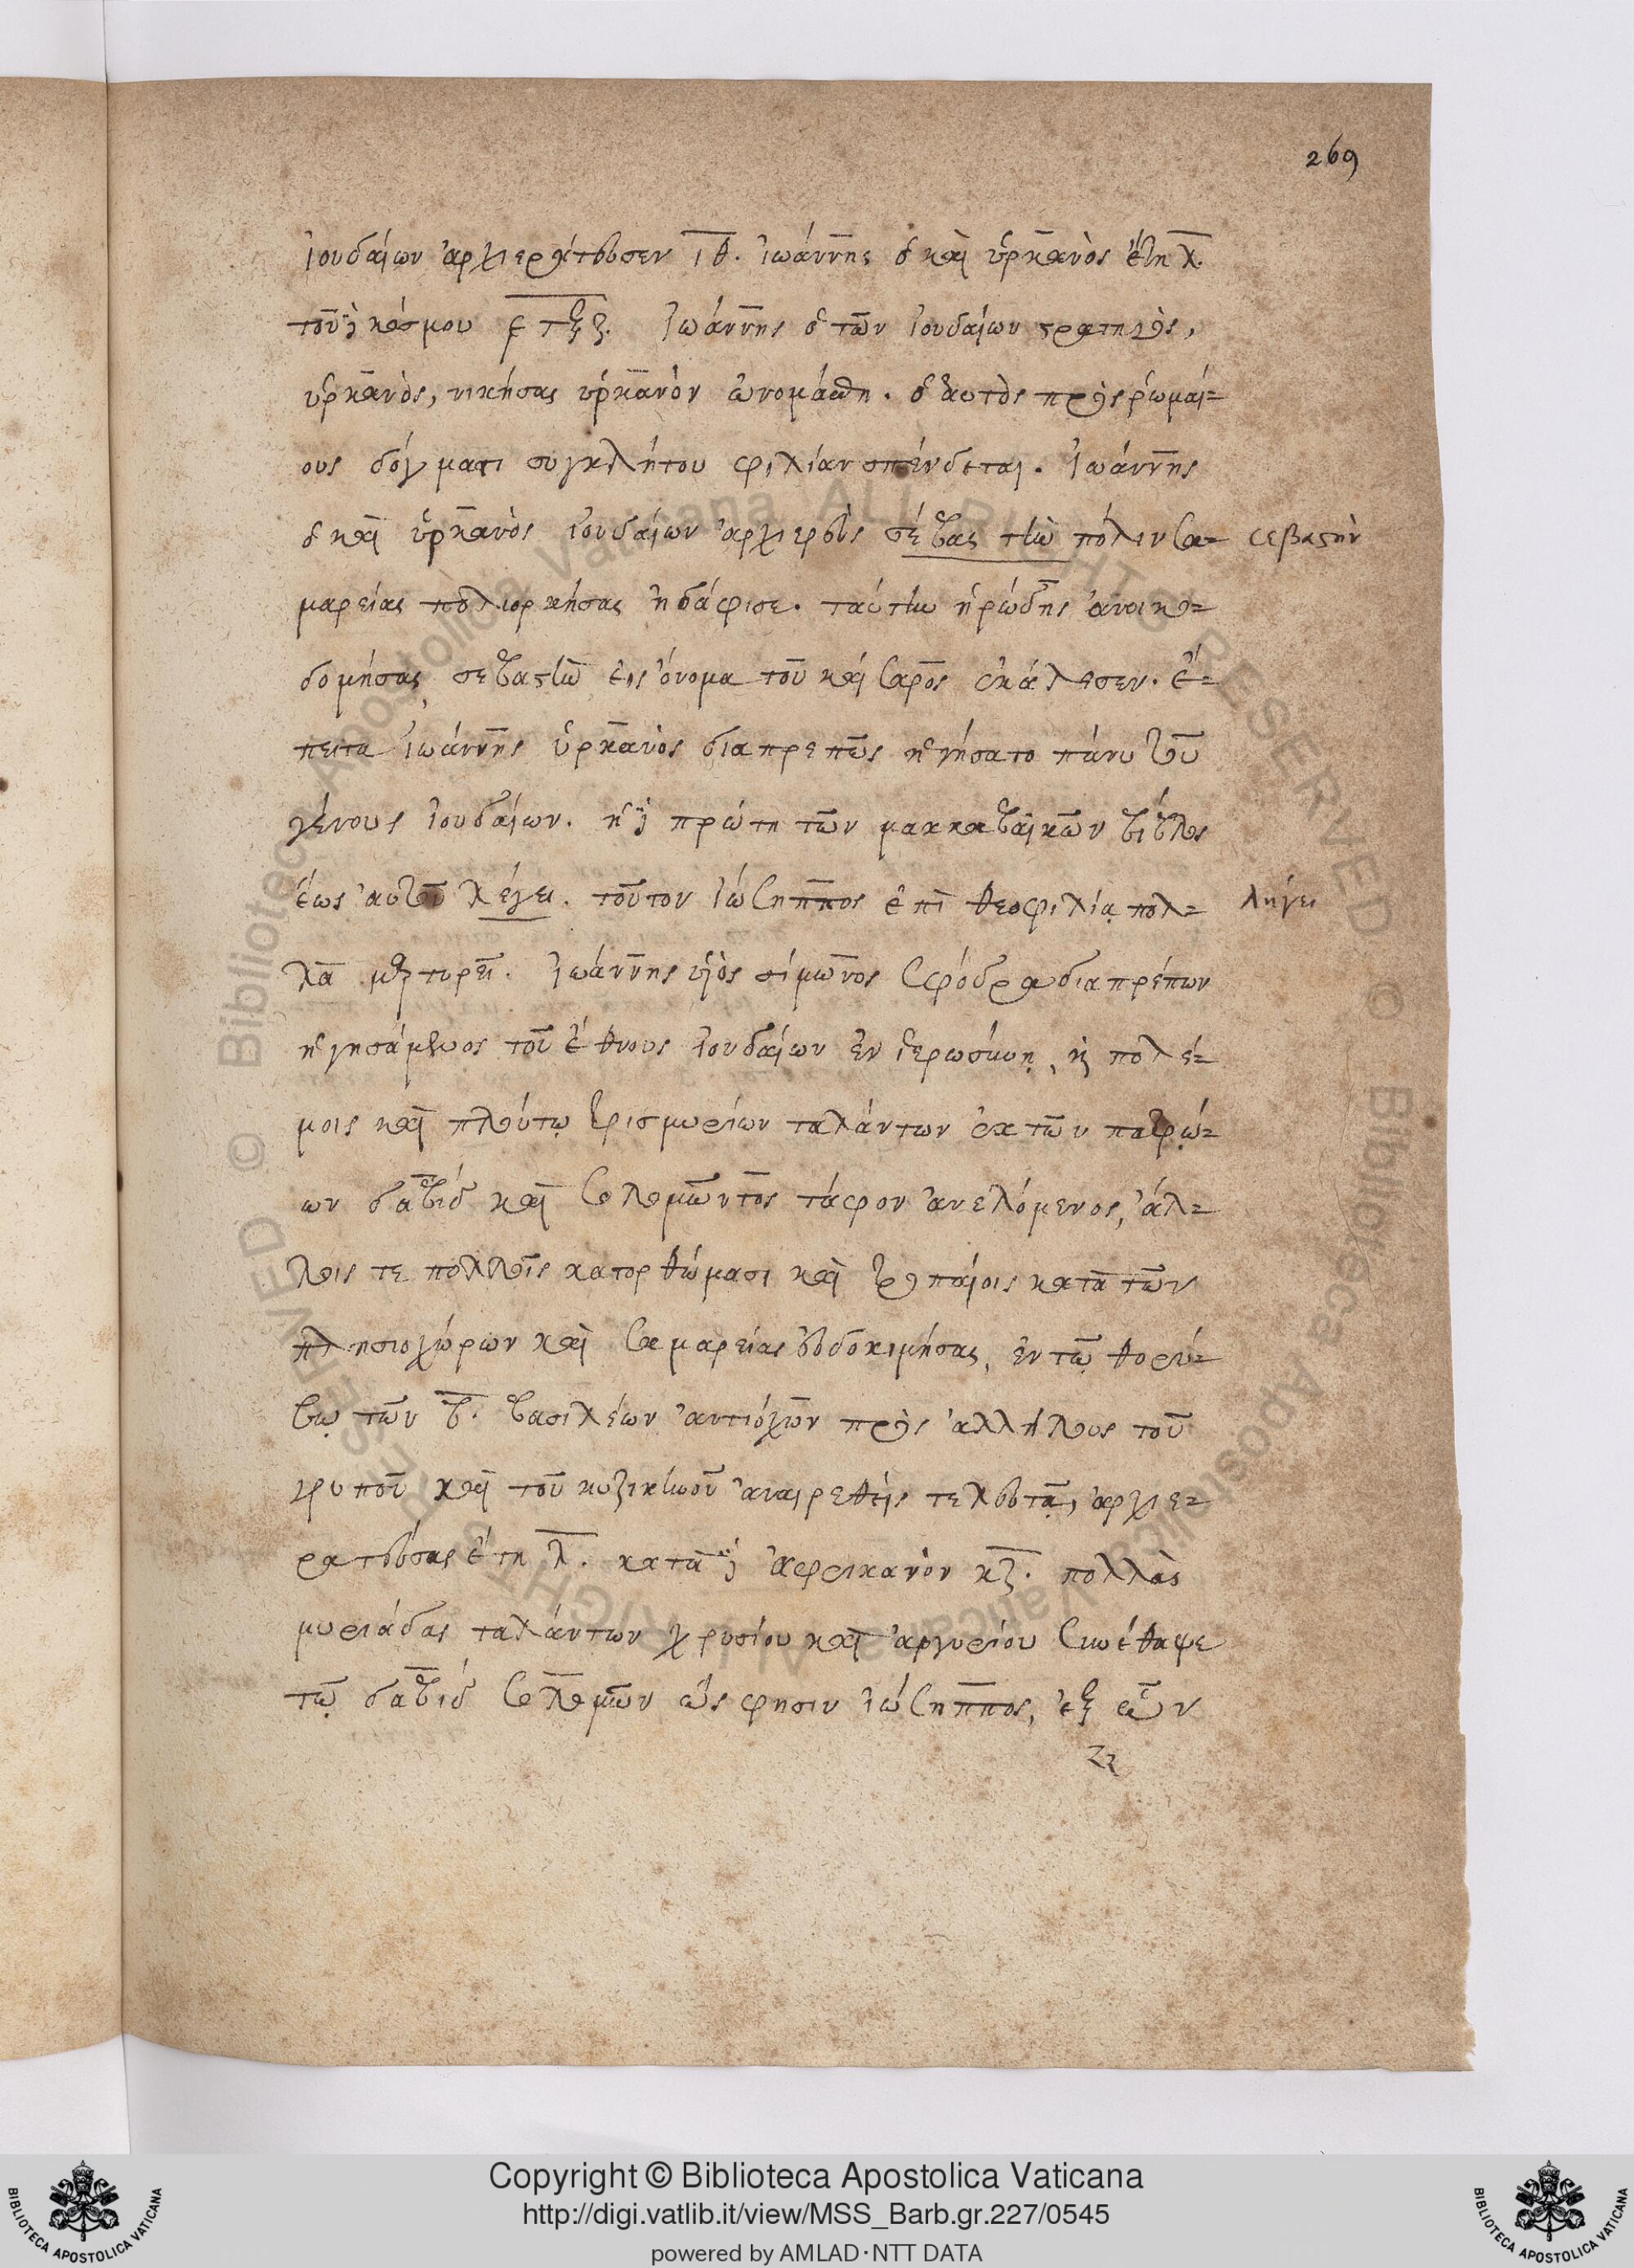 269
ἰουδαίων ἀρχιεράτευσεν ιθ. ἰωάννης ὁ καὶ ὑρκανὸς ἔτη λ.
τοῦ δὲ κόσμου ετξζ. ἰωάννης ὁ τῶν ἰουδαίων στρατηγὸς,
ὑρκανὸς, νικήσας ὑρκανὸν ὠνομάσθη. ὁ δ' αὐτὸς πρὸς ρωμαί-
ους δόγματι συγκλήτου φιλίαν σπένδεται. ἰωάννης
ὁ καὶ ὑρκανὸς ἰουδαίων ἀρχιερεὺς σέβας τὴν πόλιν σα- σεβαστὴν
μαρείας πολιορκήσας ἠδάφισε. ταύτην ἡρώδης ἀνοικο-
δομήσας σεβαστὴν εἰς ὄνομα τοῦ καίσαρος ἐκάλεσεν. ἔ-
πειτα ἰωάννης ὑρκανὸς διαπρεπῶς ἡγήσατο πάνυ τοῦ
γένους ἰουδαίων. ἡ δὲ πρώτη τῶν μακκαβαϊκῶν βίβλος
ἕως αὐτοῦ λέγει. τοῦτον ἰώσηππος ἐπὶ θεοφιλίᾳ πολ- λήγει
λὰ μαρτυρεῖ. ἰωάννης υἱὸς σίμωνος σφόδρα διαπρέπων
ἡγησάμενος τοῦ ἔθνους ἰουδαίων ἐν ἱερωσύνῃ, καὶ πολέ-
μοις καὶ πλούτῳ τρισμυρίων ταλάντων ἐκ τῶν πατρώ-
ων δαβὶδ καὶ σολομῶντος τάφον ἀνελόμενος, ἄλ-
λοις τε πολλοῖς κατορθώμασι καὶ τροπαίοις κατὰ τῶν
πλησιοχώρων καὶ σαμαρείας εὐδοκιμήσας, ἐν τῷ θορύ-
βῳ τῶν β. βασιλέων ἀντιόχων πρὸς ἀλλήλους τοῦ
γρυποῦ καὶ τοῦ κυζικηνοῦ ἀναιρεθεὶς τελευτᾷ, ἀρχιε-
ρατεύσας ἔτη λ. κατὰ δὲ ἀφρικανὸν κζ. πολλὰς
μυριάδας ταλάντων χρυσίου καὶ ἀργυρίου συνέθαψε
τῷ δαβὶδ σολομῶν ὥς φησιν ἰώσηππος, ἐξ ὧν
Copyright © Biblioteca Apostolica Vaticana
http://digi.vatlib.it/view/MSS_Barb.gr.227/0545
powered by AMLAD·NTT DATA
BIBLIOTECA APOSTOLICA VATICANA
BIBLIOTECA APOSTOLICA VATICANA